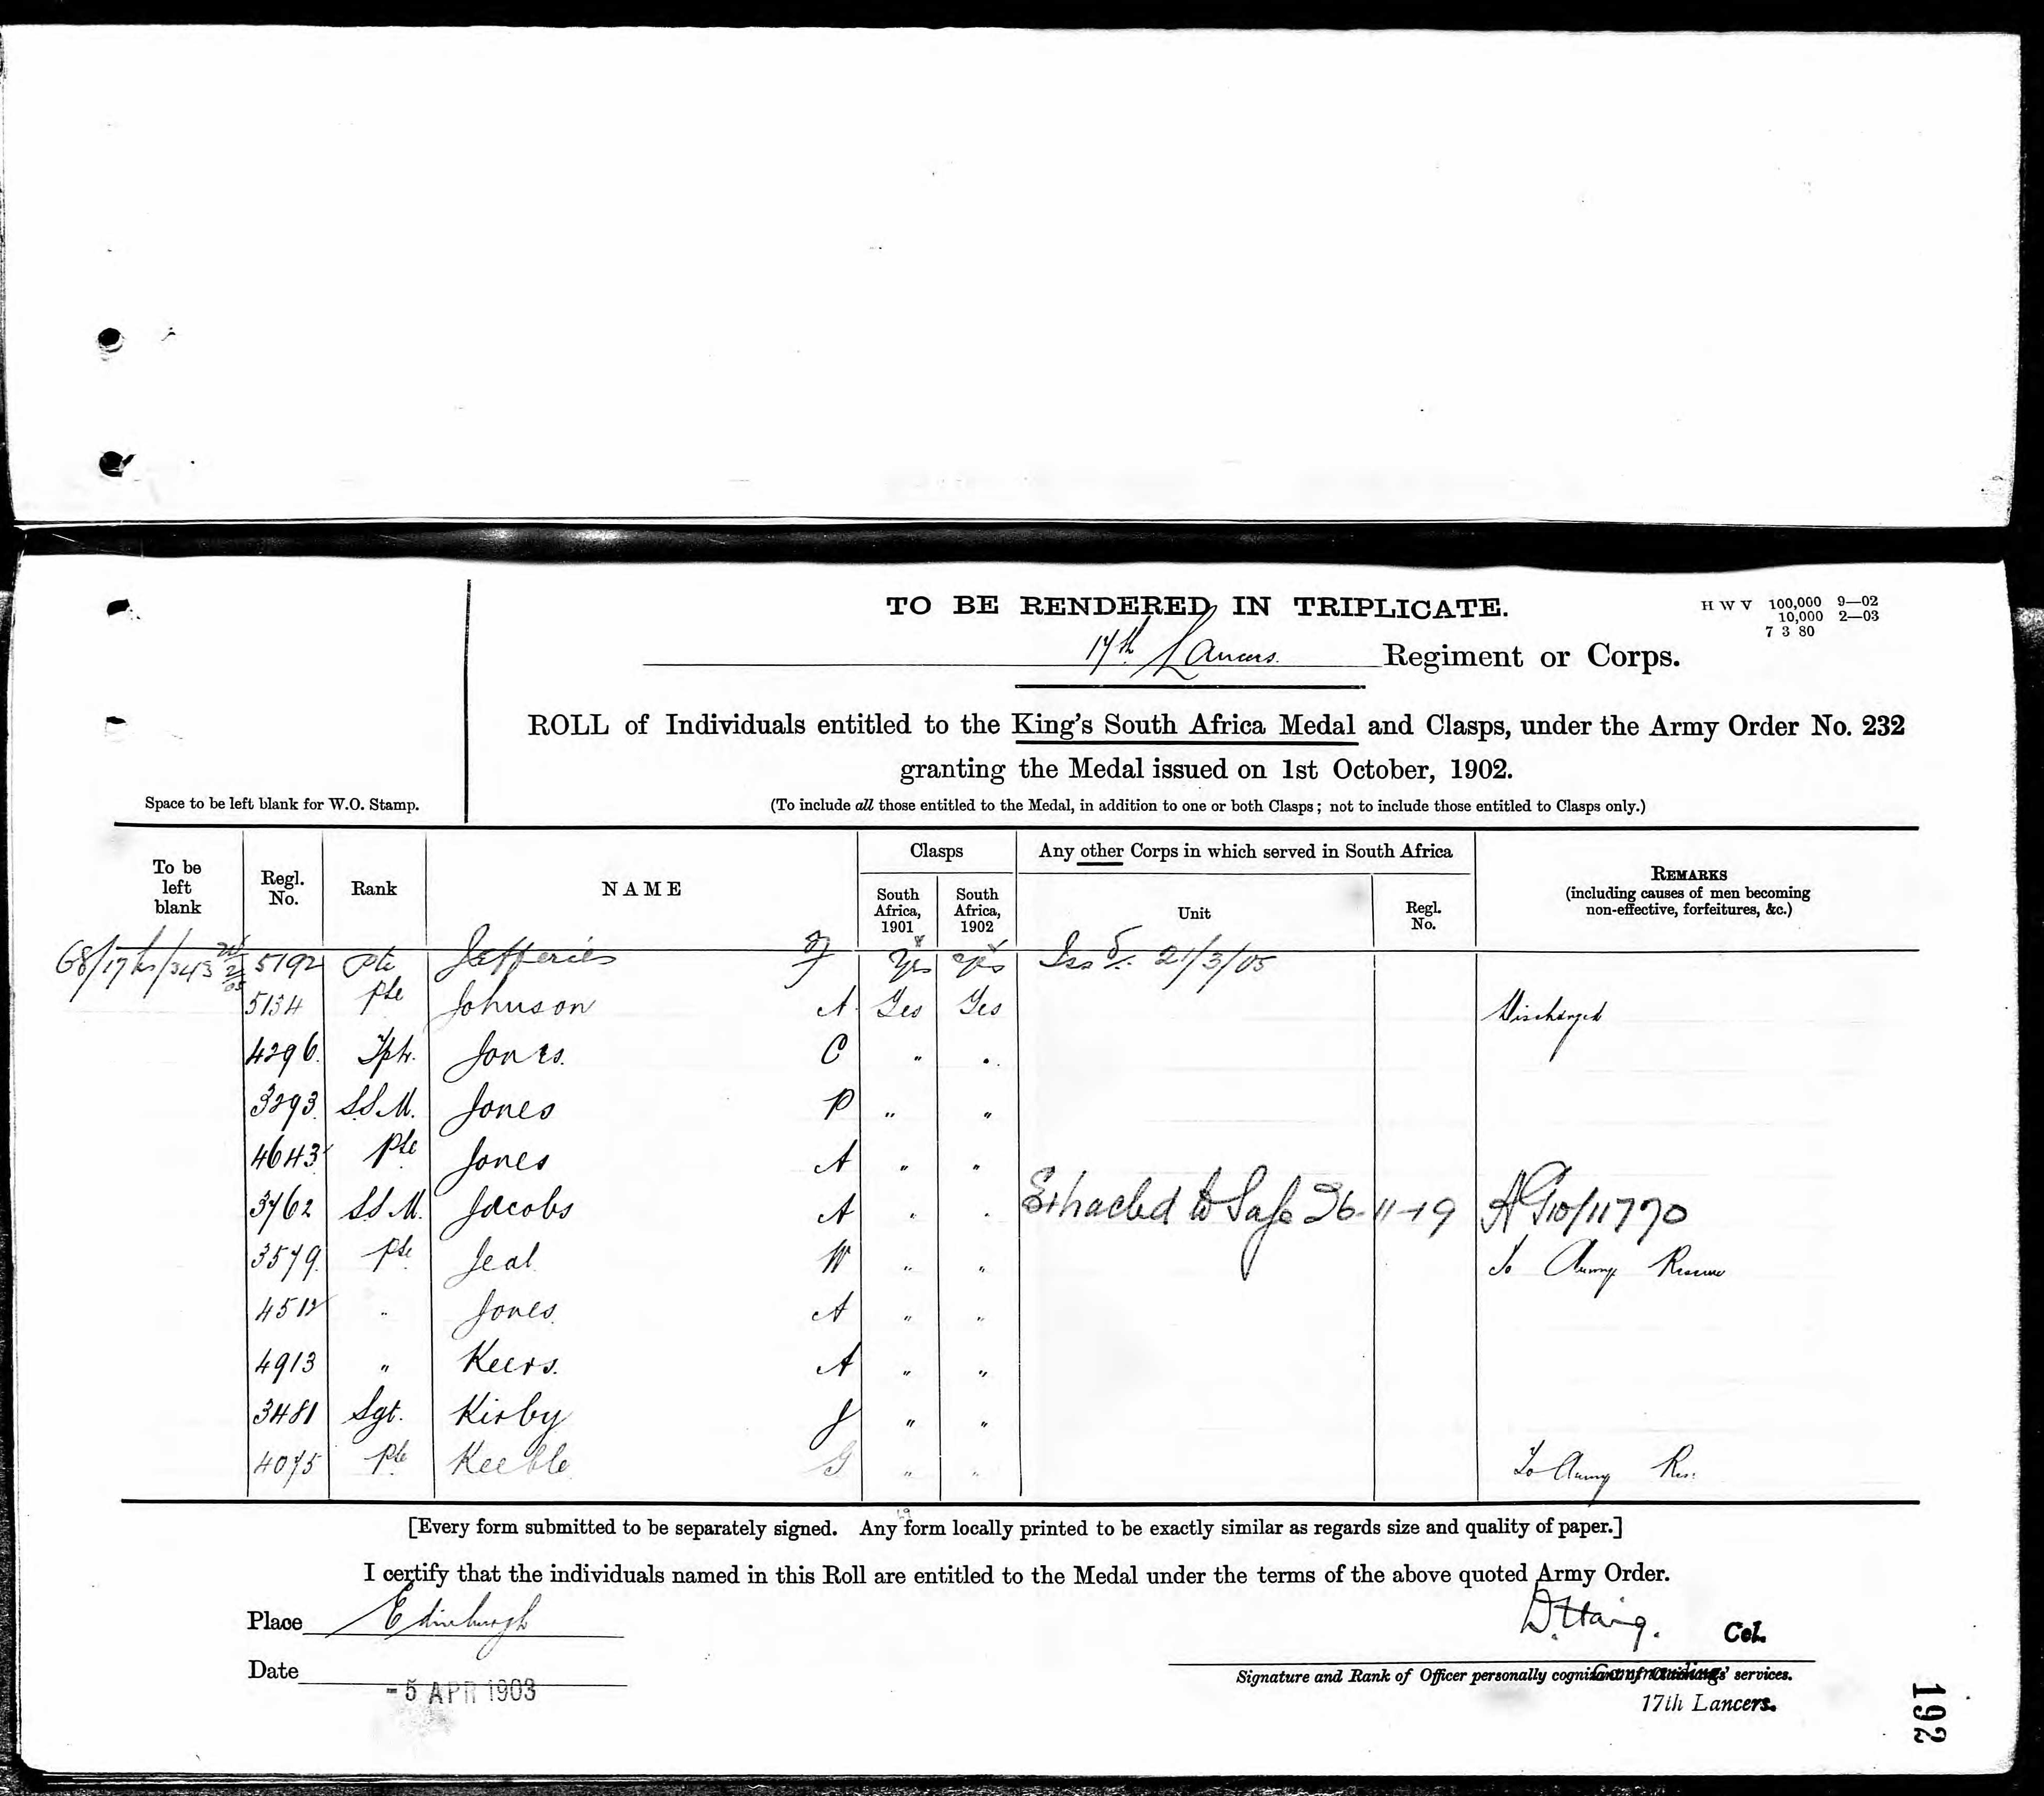 TO BE RENDERED IN TRIPLICATE.
H W V 100,000 9—02
10,000 2—03
7 3 80
17th Lancers. Regiment or Corps.
ROLL of Individuals entitled to the King's South Africa Medal and Clasps, under the Army Order No. 232
granting the Medal issued on 1st October, 1902.
Space to be left blank for W.O. Stamp.
(To include all those entitled to the Medal, in addition to one or both Clasps; not to include those entitled to Clasps only.)
To be left blank
Regl. No.
Rank
NAME
Clasps
South Africa, 1901
South Africa, 1902
Any other Corps in which served in South Africa
Unit
Regl. No.
REMARKS
(including causes of men becoming non-effective, forfeitures, &c.)
68/17 Lrs/343 5192 Pte Jefferies J Yes Yes Issd. 21/3/05
5134 Pte Johnson A Yes Yes Discharged
4296 Tptr. Jones. C " "
3293 S.S.M. Jones P " "
4643 Pte Jones A " "
3762 S.S.M. Jacobs A " " Extracted to Safe 26-11-19 AG10/11770
3579 Pte Jeal W " " To Army Reserve
4512 " Jones A " "
4913 " Keers. A " "
3481 Sgt. Kirby J " "
4075 Pte Keeble G " " To Army Res:
[Every form submitted to be separately signed. Any form locally printed to be exactly similar as regards size and quality of paper.]
I certify that the individuals named in this Roll are entitled to the Medal under the terms of the above quoted Army Order.
Place Edinburgh
D. Haig. Col.
Date -5 APR 1903
Signature and Rank of Officer personally services.
17th Lancers.
192